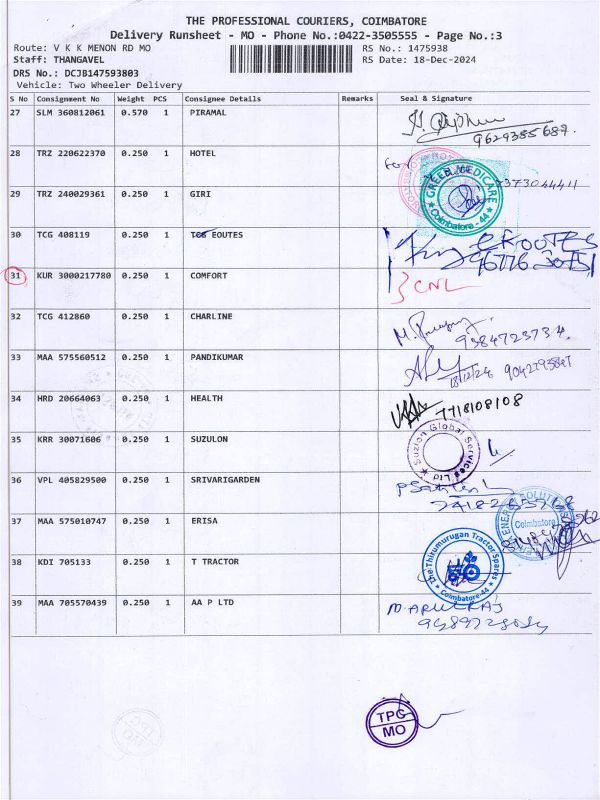 THE PROFESSIONAL COURIERS, COIMBATORE
Delivery Runsheet - MO - Phone No.:0422-3505555 - Page No.:3
Route: V K K MENON RD MO RS No.: 1475938
Staff: THANGAVEL RS Date: 18-Dec-2024
DRS No.: DCJB147593803
Vehicle: Two Wheeler Delivery
S No Consignment No Weight PCS Consignee Details Remarks Seal & Signature
27 SLM 360812061 0.570 1 PIRAMAL
9629385687.
28 TRZ 220622370 0.250 1 HOTEL
For
29 TRZ 240029361 0.250 1 GIRI
GREEN MEDICARE
Coimbatore - 44
7373044411
30 TCG 408119 0.250 1 TCG EOUTES
31 KUR 3000217780 0.250 1 COMFORT
CNL
32 TCG 412860 0.250 1 CHARLINE
9384723734.
33 MAA 575560512 0.250 1 PANDIKUMAR
18/12/24 9042793847
34 HRD 20664063 0.250 1 HEALTH
7718108108
35 KRR 30071606 0.250 1 SUZULON
Suzlon Global Services Ltd
36 VPL 405829500 0.250 1 SRIVARIGARDEN
37 MAA 575010747 0.250 1 ERISA
Coimbatore
38 KDI 705133 0.250 1 T TRACTOR
The Thirumurugan Tractor Spares
Coimbatore-44
39 MAA 705570439 0.250 1 AA P LTD
M. ARULRAJ
TPC
MO